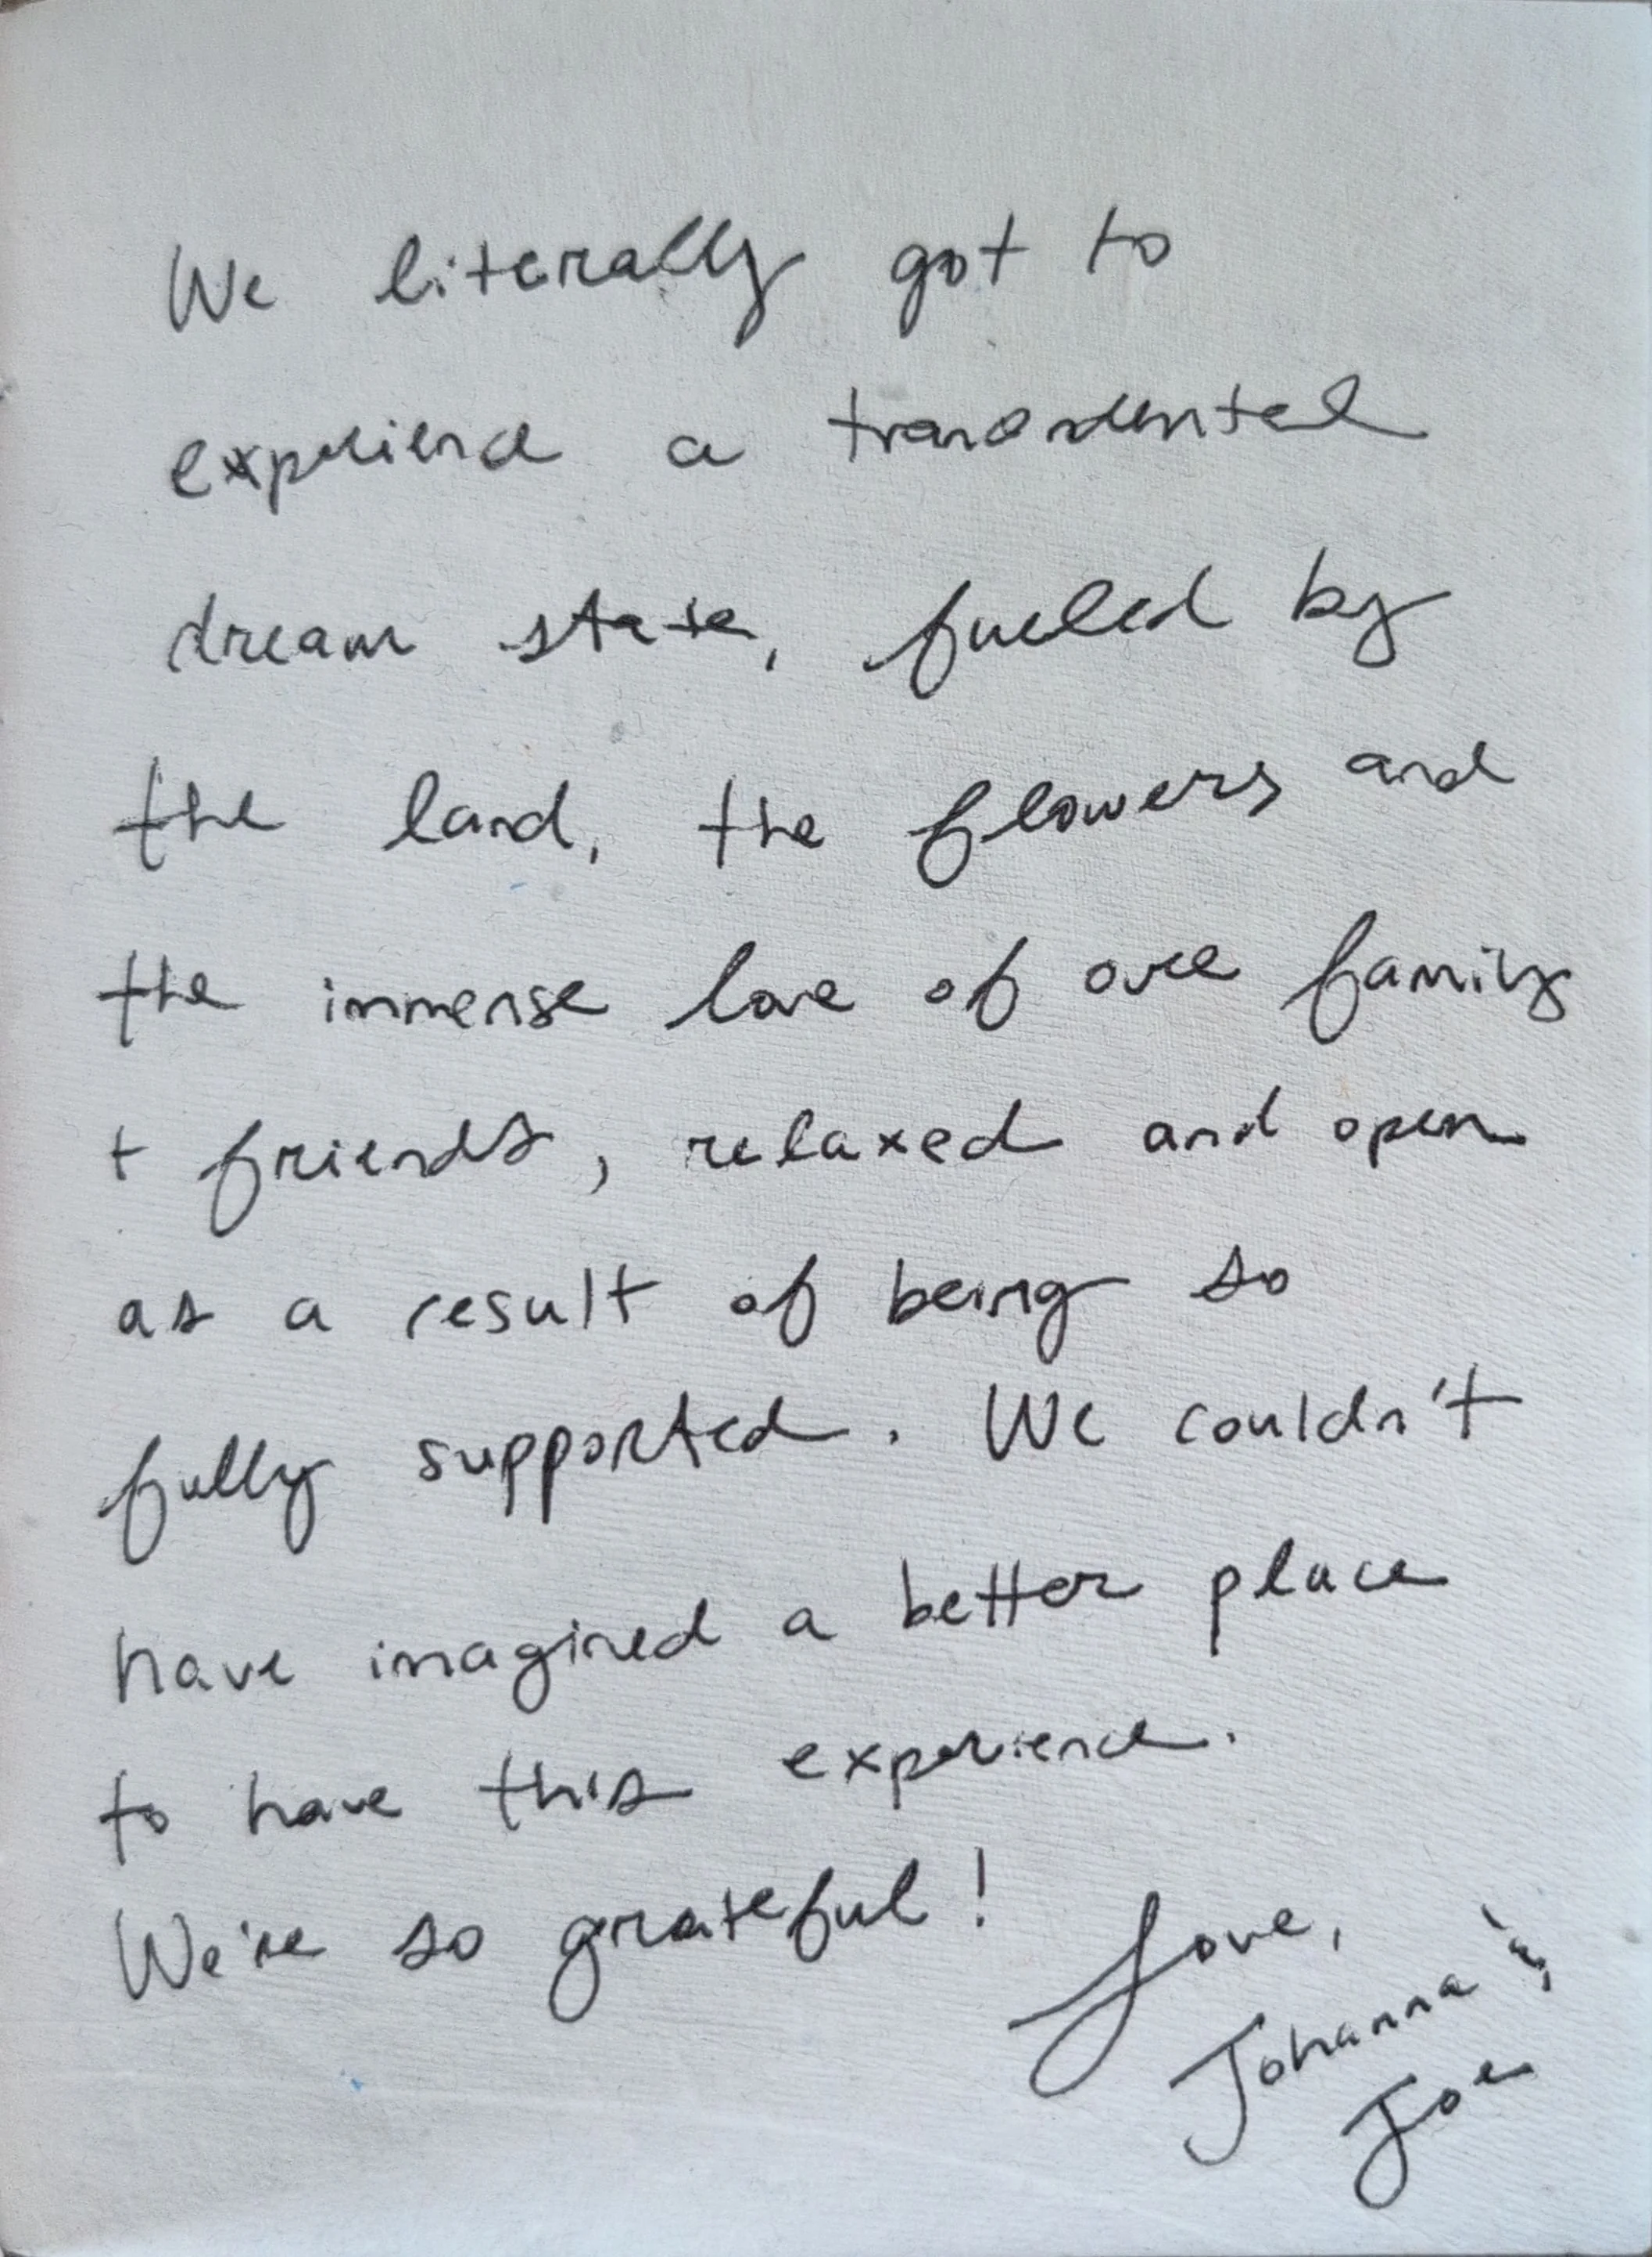 We literally got to
experience a transcdental
dream state, fueled by
the land, the flowers and
the immense love of our family
+ friends, relaxed and open
as a result of being so
fully supported. We couldn't
have imagined a better place
to have this experience.
We're so grateful!
Love,
Johanna &
Joe